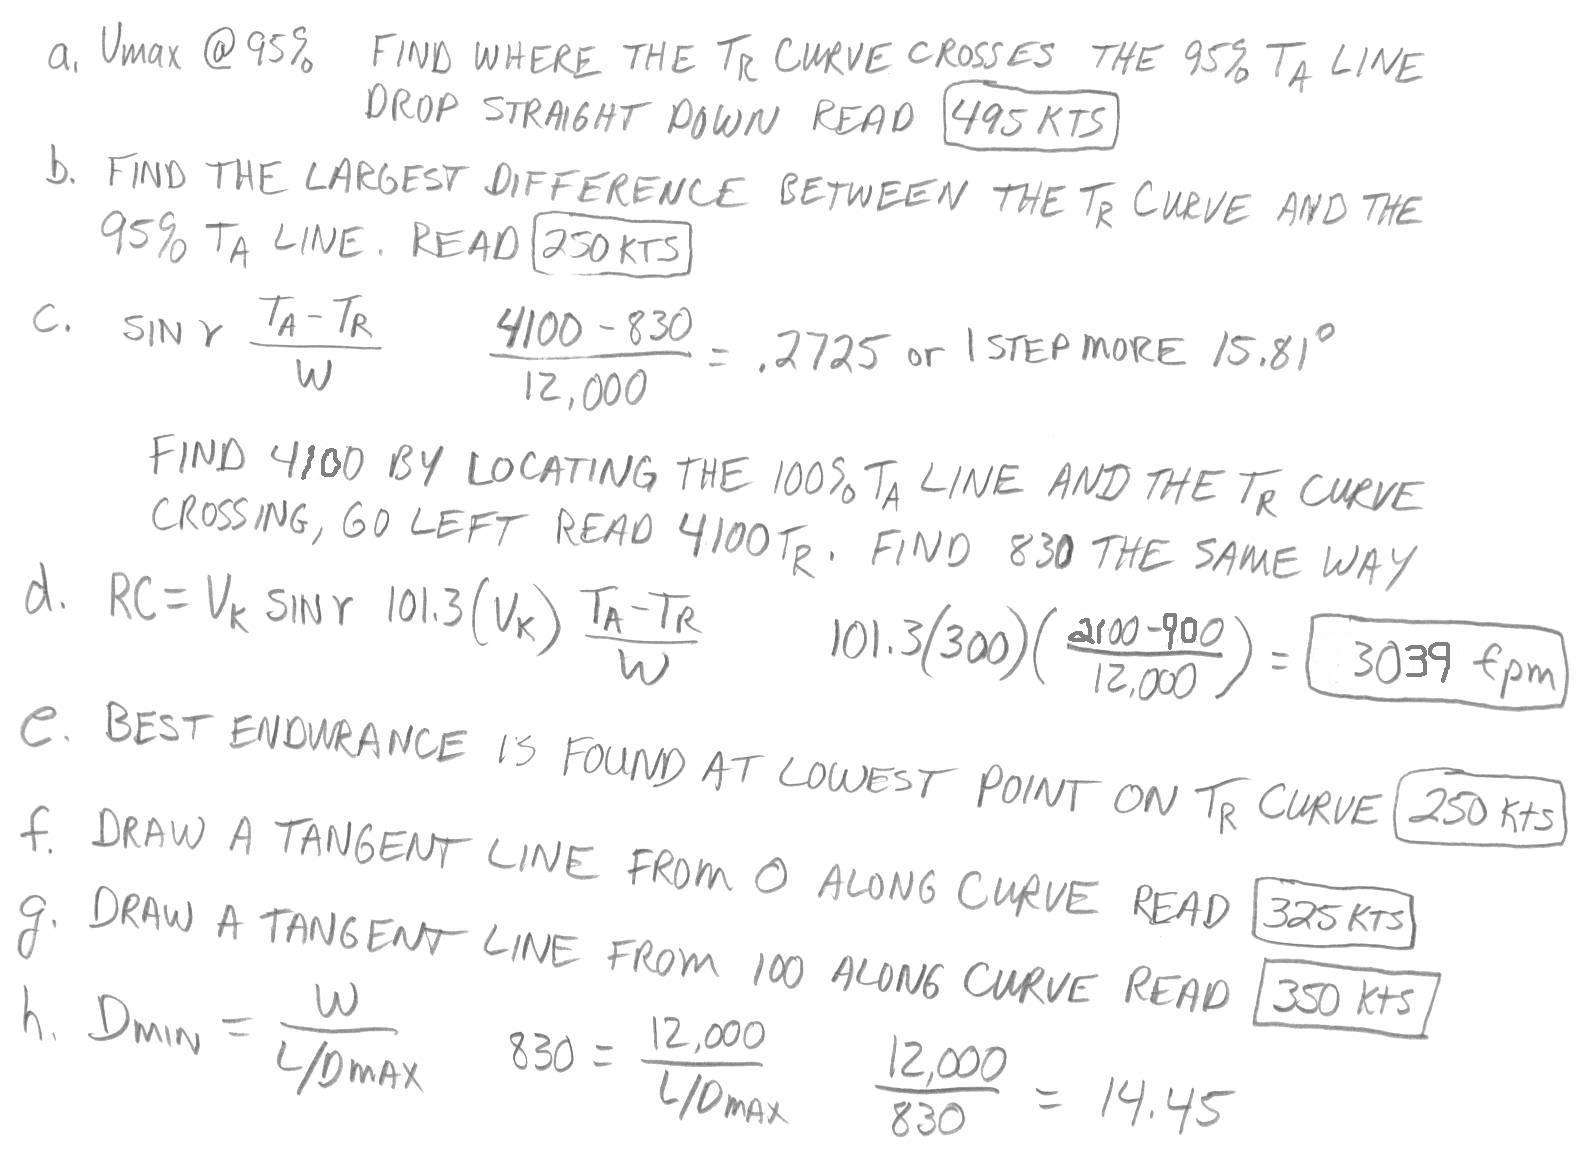 a. Vmax @ 95% FIND WHERE THE TR CURVE CROSSES THE 95% TA LINE
DROP STRAIGHT DOWN READ 495 KTS
b. FIND THE LARGEST DIFFERENCE BETWEEN THE TR CURVE AND THE
95% TA LINE. READ 250 KTS
c. SIN γ TA-TR / W 4100-830 / 12,000 = .2725 or 1 STEP MORE 15.81°
FIND 4100 BY LOCATING THE 100% TA LINE AND THE TR CURVE
CROSSING, GO LEFT READ 4100 TR. FIND 830 THE SAME WAY
d. RC = VK SIN γ 101.3(VK) TA-TR / W 101.3(300)(2100-900 / 12,000) = 3039 fpm
e. BEST ENDURANCE IS FOUND AT LOWEST POINT ON TR CURVE 250 Kts
f. DRAW A TANGENT LINE FROM 0 ALONG CURVE READ 325 KTS
g. DRAW A TANGENT LINE FROM 100 ALONG CURVE READ 350 Kts
h. DMIN = W / L/DMAX 830 = 12,000 / L/DMAX 12,000 / 830 = 14.45